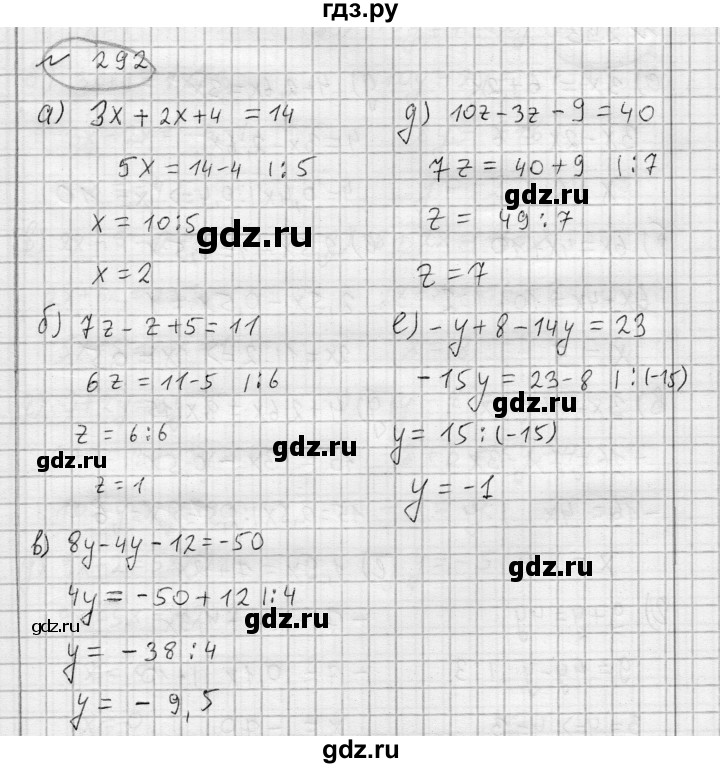 гдз.ру
№ 292
а) 3x + 2x + 4 = 14
5x = 14 - 4 | : 5
x = 10 : 5
gdz.ru
x = 2
б) 7z - z + 5 = 11
6z = 11 - 5 | : 6
z = 6 : 6
gdz.ru
z = 1
в) 8y - 4y - 12 = -50
4y = -50 + 12 | : 4
gdz.ru
y = -38 : 4
y = -9,5
д) 10z - 3z - 9 = 40
7z = 40 + 9 | : 7
gdz.ru
z = 49 : 7
z = 7
е) -y + 8 - 14y = 23
-15y = 23 - 8 | : (-15)
gdz.ru
y = 15 : (-15)
gdz.ru
y = -1
gdz.ru
gdz.ru
gdz.ru